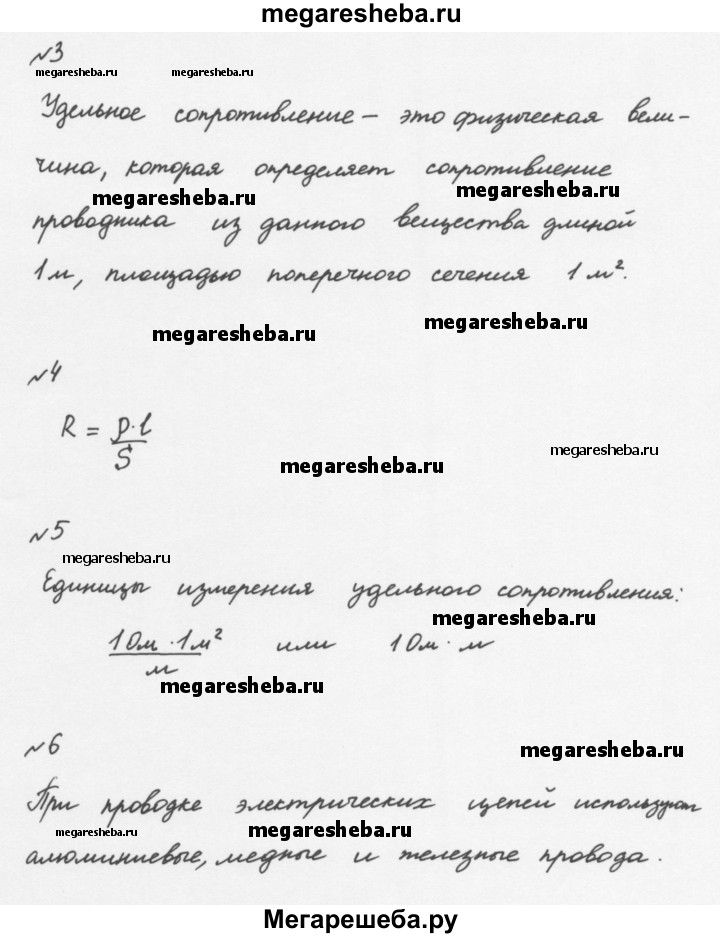 megaresheba.ru
№3
megaresheba.ru megaresheba.ru
Удельное сопротивление – это физическая вели-
чина, которая определяет сопротивление
megaresheba.ru megaresheba.ru
проводника из данного вещества длиной
1м, площадью поперечного сечения 1 м².
megaresheba.ru megaresheba.ru
№4
R = ρ·l / S
megaresheba.ru megaresheba.ru
№5
megaresheba.ru
Единицы измерения удельного сопротивления:
megaresheba.ru
1Ом · 1м² / м или 1Ом · м
megaresheba.ru
№6
megaresheba.ru
При проводке электрических цепей используют
megaresheba.ru megaresheba.ru
алюминиевые, медные и железные провода.
Мегарешеба.ру